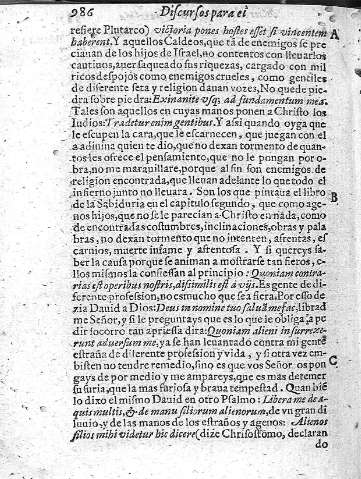 986 Discursos para el
refiere Plutarco) victoria penes hostes esset si vincentem
haberent. Y aquellos Caldeos, que tā de enemigos se pre
ciauan de los hijos de Israel, no contentos con lleuarlos
cautiuos, auer saqueado sus riquezas, cargado con mil
ricos despojos como enemigos crueles, como gentiles
de diferente seta y religion dauan vozes, No quede pie-
dra sobre piedra: Exinanite vsq; ad fundamentum in ea.
Tales son aquellos en cuyas manos ponen a Christo los
Iudios: Tradetur enim gentibus. Y assi quando oyga que
le escupen la cara, que le escarnecen, que juegan con el
a adiuina quien te dio, que no dexan tormento de quan-
tos les ofrece el pensamiento, que no le pongan por o-
bra, no me marauillare, porque al fin son enemigos de
religion encontrada, que lleuan adelante lo que todo el
infierno junto no lleuara. Son los que pintaua el libro
de la Sabiduria en el capitulo segundo, que como age-
nos hijos, que no se le parecian a Christo en nada, como
de encontradas costumbres, inclinaciones, obras y pala
bras, no dexan tormento que no intenten, afrentas, es
carnios, muerte infame y afrentosa. Y si quereys sa-
ber la causa porque se animan a mostrarse tan fieros, e-
llos mismos la confiessan al principio: Quoniam contra-
rias est operibus nostris, dissimilis est à vijs. Es gente de di-
ferente profession, no es mucho que sea fiera. Por esso de
zia Dauid a Dios: Deus in nomine tuo saluū me fac, librad
me Señor, y si le preguntays que es lo que le obliga a pe
dir socorro tan apriessa dira: Quoniam alieni insurrexe-
runt aduersum me, ya se han leuantado contra mi gente
estraña de diferente profession y vida, y si otra vez em-
bisten no tendre remedio, sino es que vos Señor os pon
gays de por medio y me ampareys, que es mas detener
su furia, que la mas furiosa y braua tempestad. Quan biē
lo dixo el mismo Dauid en otro Psalmo: Libera me de a-
quis multis, & de manu filiorum alienorum, de vn gran di
luuio, y de las manos de los estraños y agenos: Alienos
filios mihi videtur hic dicere (dize Chrisostomo, declaran
do
A
B
C